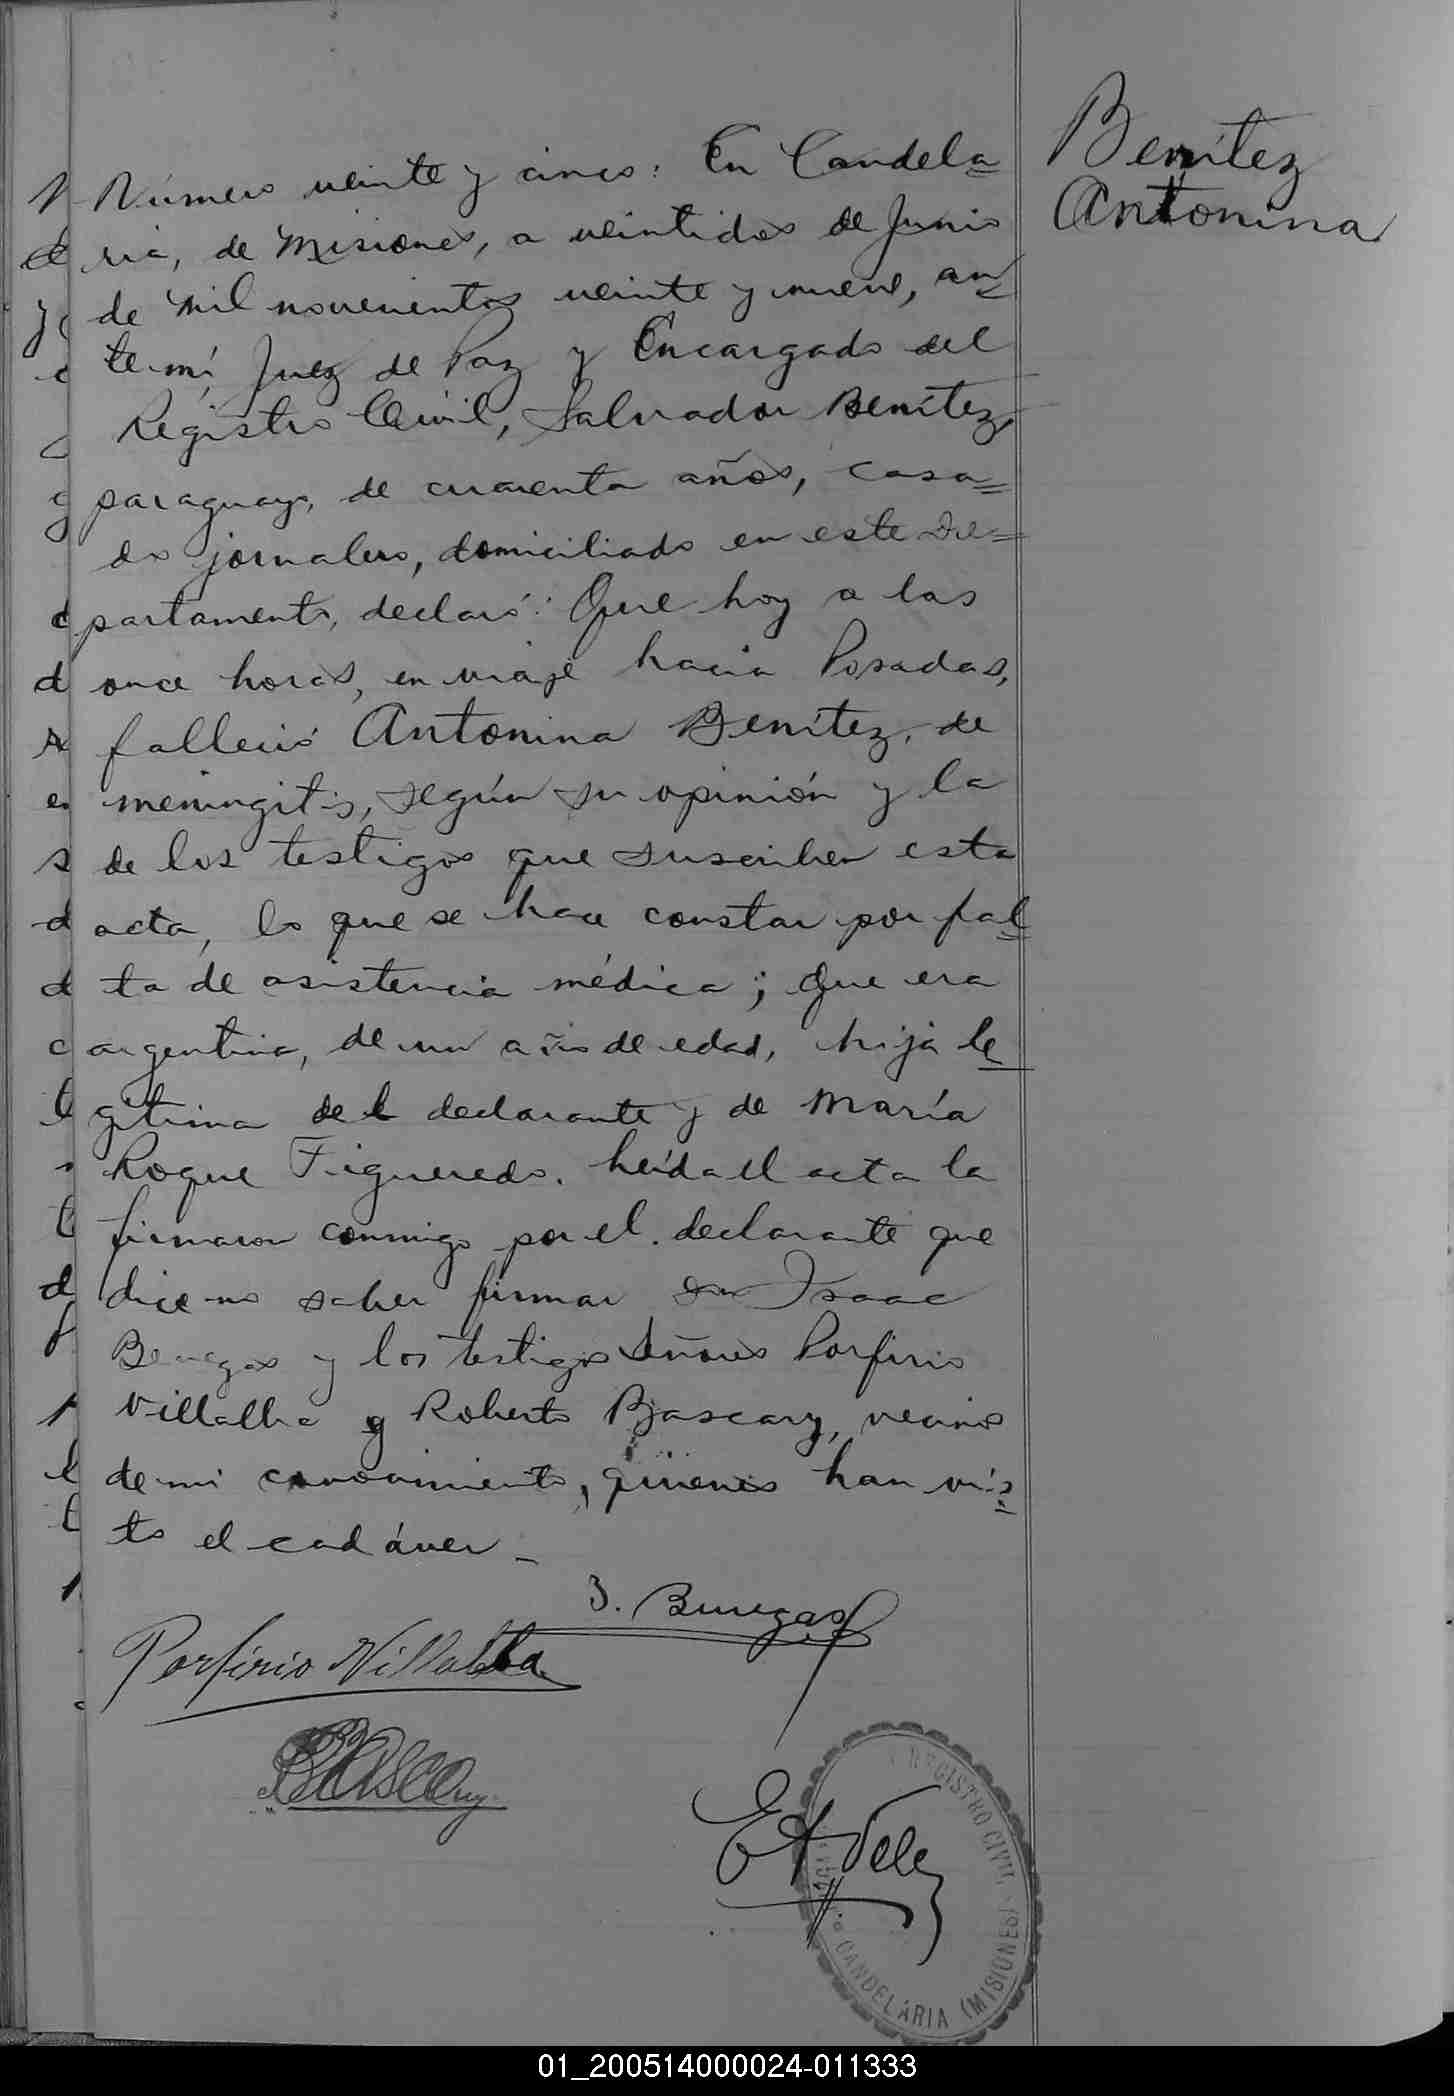 Benítez
Antonina
Número veinte y cinco: En Candela=
ria, de Misiones, a veintidos de Junio
de mil novecientos veinte y nueve, an=
te mí, Juez de Paz y Encargado del
Registro Civil, Salvador Benítez,
paraguayo, de cuarenta años, casa=
do jornalero, domiciliado en este De=
partamento, declaró: Que hoy a las
once horas, en viaje hacia Posadas,
falleció Antonina Benítez, de
meningitis, según su opinión y la
de los testigos que suscriben esta
acta, lo que se hace constar por fal=
ta de asistencia médica; Que era
argentina, de un año de edad, hija le
gítima del declarante y de María
Roque Figueredo. Leída el acta la
firmaron conmigo por el declarante que
dice no saber firmar don Isaac
Benegas y los testigos señores Porfirio
Villalba y Roberto Bascary, vecinos
de mi conocimiento, quienes han vis=
to el cadáver_
I. Benegas
Porfirio Villalba
RBascary
REGISTRO CIVIL
CANDELARIA (MISIONES)
01_200514000024-011333